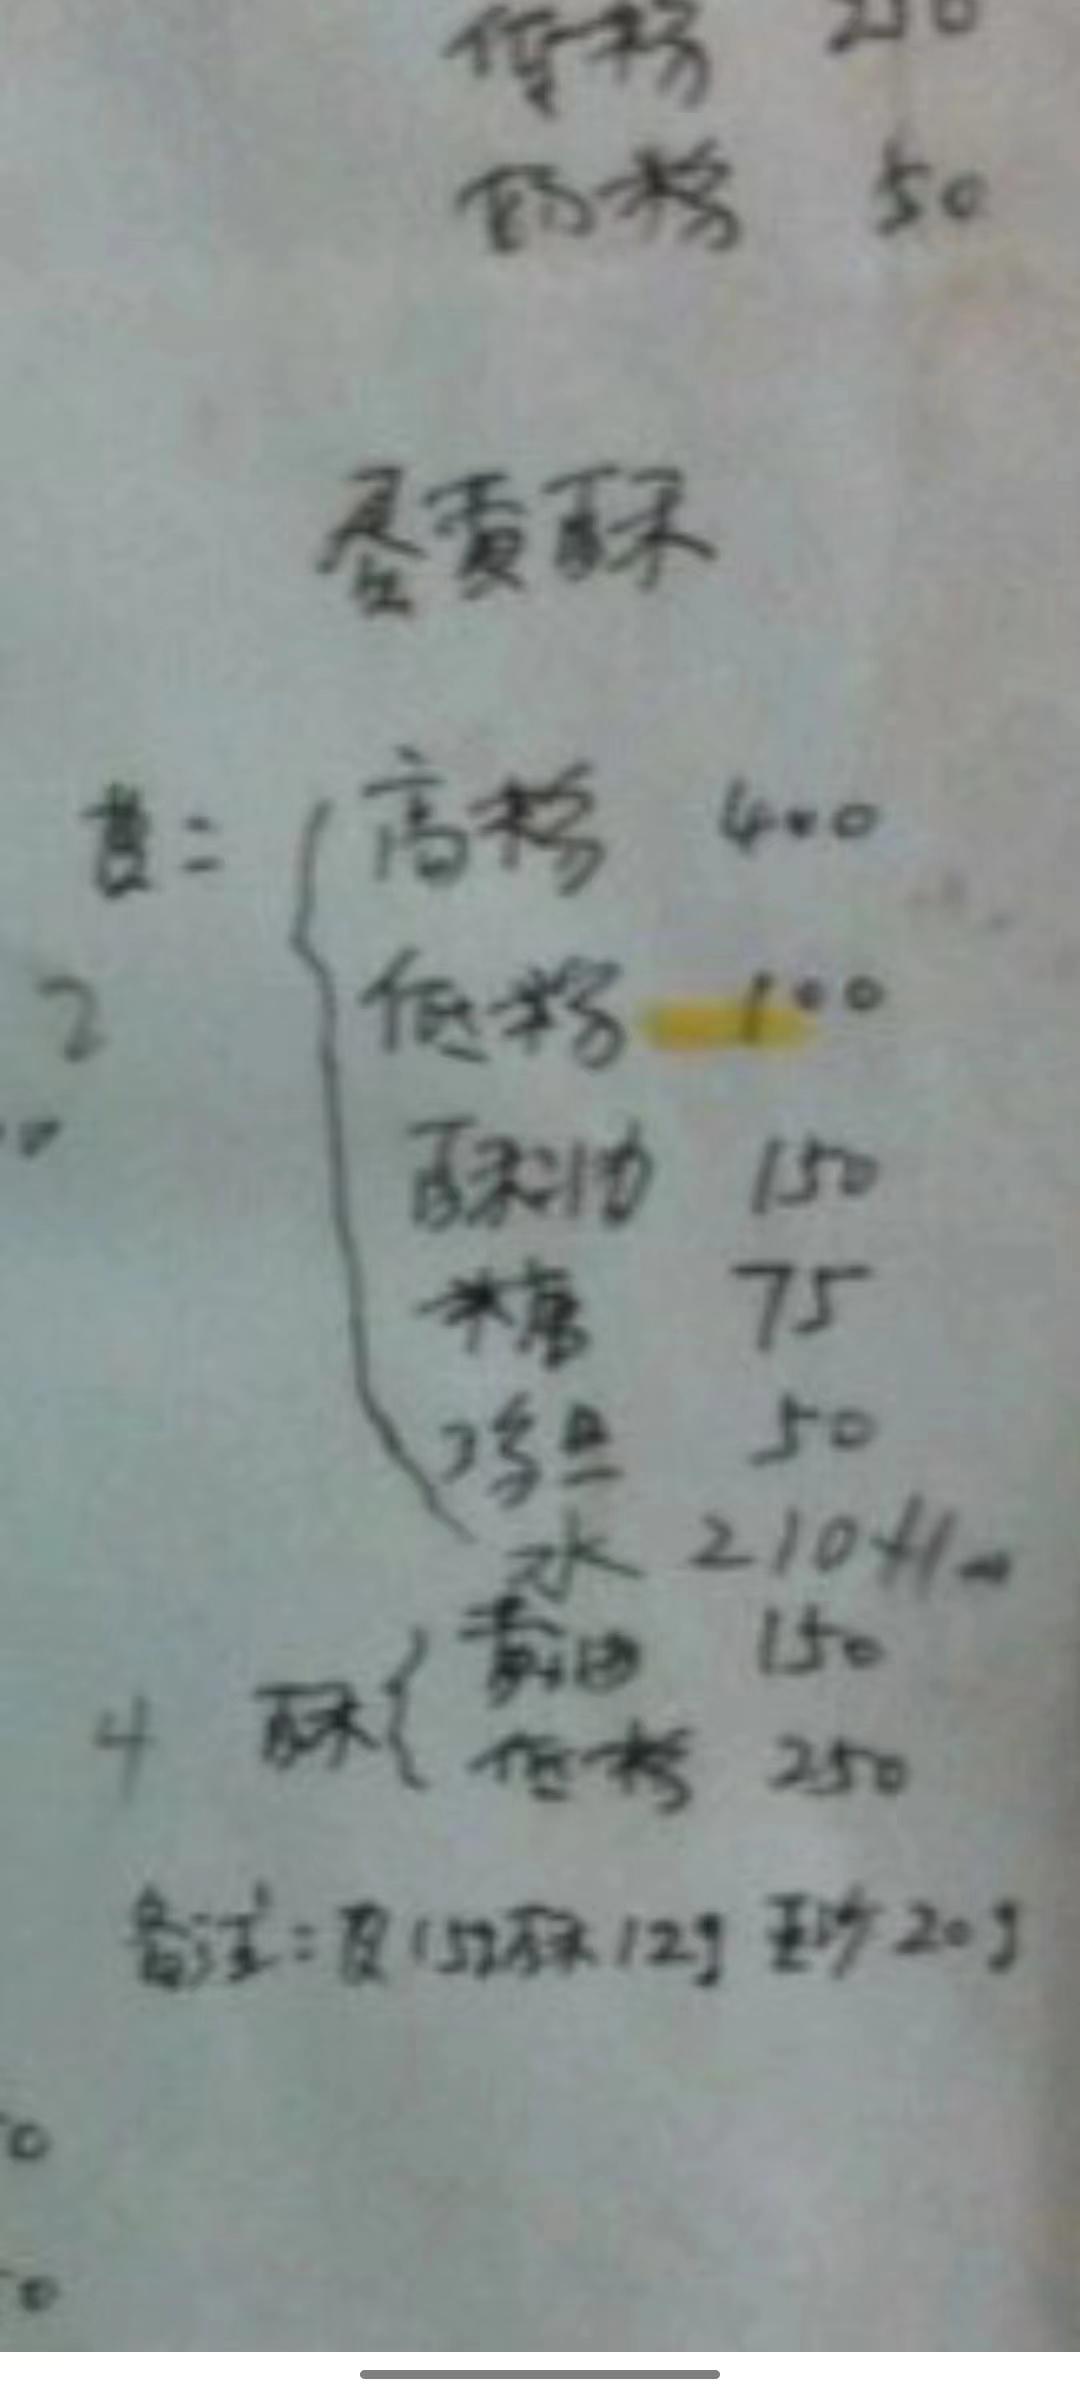 低粉 250
奶粉 50
蛋黄酥
皮=
高粉 400
低粉 100
2
酥油 150
糖 75
鸡蛋 50
水 210
黄油 150
4 酥
低粉 250
备注:皮15g酥12g 豆沙20g